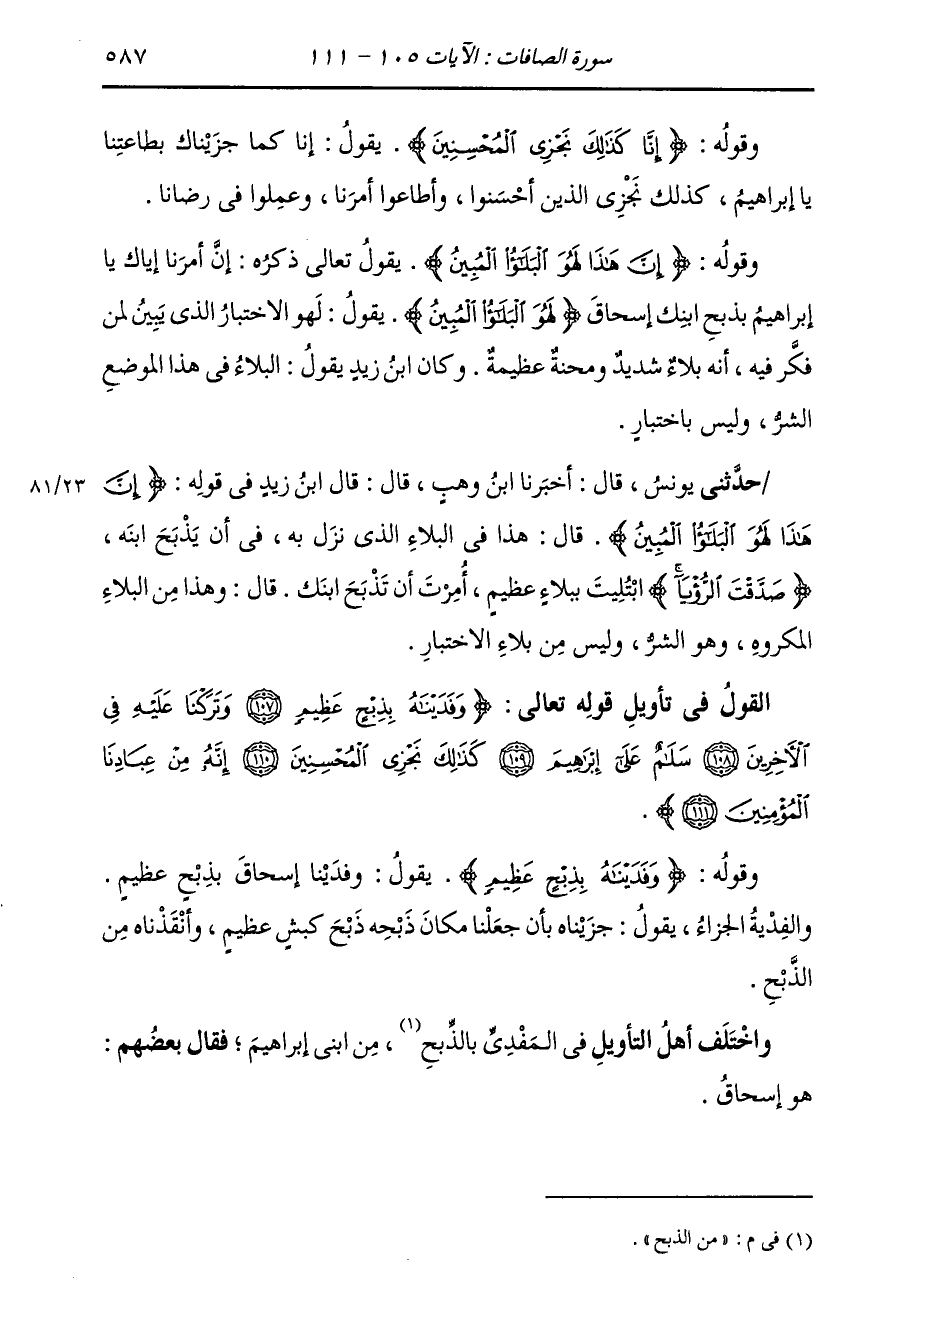 سورة الصافات : الآيات ١٠٥ - ١١١ ٥٨٧
وقولُه : ﴿ إِنَّا كَذَٰلِكَ نَجْزِى ٱلْمُحْسِنِينَ ﴾ . يقولُ : إنا كما جزَيْناك بطاعتِنا
يا إبراهيمُ ، كذلك نَجْزِى الذين أحْسَنوا ، وأطاعوا أمرَنا ، وعمِلوا فى رضانا .
وقولُه : ﴿ إِنَّ هَٰذَا لَهُوَ ٱلْبَلَٰٓؤُا۟ ٱلْمُبِينُ ﴾ . يقولُ تعالى ذكرُه : إنَّ أمرَنا إياك يا
إبراهيمُ بذبحِ ابنِك إسحاقَ ﴿ لَهُوَ ٱلْبَلَٰٓؤُا۟ ٱلْمُبِينُ ﴾ . يقولُ : لَهو الاختبارُ الذى يَبِينُ لمن
فكَّر فيه ، أنه بلاءٌ شديدٌ ومحنةٌ عظيمةٌ . وكان ابنُ زيدٍ يقولُ : البلاءُ فى هذا الموضعِ
الشرُّ ، وليس باختبارٍ .
/حدَّثنى يونسُ ، قال : أخبَرنا ابنُ وهبٍ ، قال : قال ابنُ زيدٍ فى قولِه : ﴿ إِنَّ ٨١/٢٣
هَٰذَا لَهُوَ ٱلْبَلَٰٓؤُا۟ ٱلْمُبِينُ ﴾ . قال : هذا فى البلاءِ الذى نزَل به ، فى أن يَذْبَحَ ابنَه ،
﴿ صَدَّقْتَ ٱلرُّءْيَآ ۚ ﴾ ابْتُلِيتَ ببلاءٍ عظيمٍ ، أُمِرْتَ أن تَذْبَحَ ابنَك . قال : وهذا مِن البلاءِ
المكروهِ ، وهو الشرُّ ، وليس مِن بلاءِ الاختبارِ .
القولُ فى تأويلِ قولِه تعالى : ﴿ وَفَدَيْنَٰهُ بِذِبْحٍ عَظِيمٍ ١٠٧ وَتَرَكْنَا عَلَيْهِ فِى
ٱلْأَخِرِينَ ١٠٨ سَلَٰمٌ عَلَىٰٓ إِبْرَٰهِيمَ ١٠٩ كَذَٰلِكَ نَجْزِى ٱلْمُحْسِنِينَ ١١٠ إِنَّهُۥ مِنْ عِبَادِنَا
ٱلْمُؤْمِنِينَ ١١١ ﴾ .
وقولُه : ﴿ وَفَدَيْنَٰهُ بِذِبْحٍ عَظِيمٍ ﴾ . يقولُ : وفدَيْنا إسحاقَ بذِبْحٍ عظيمٍ .
والفِدْيةُ الجزاءُ ، يقولُ : جزَيْناه بأن جعَلْنا مكانَ ذَبْحِه ذَبْحَ كبشٍ عظيمٍ ، وأنْقَذْناه مِن
الذَّبْحِ .
واخْتَلَف أهلُ التأويلِ فى المَفْدِىِّ بالذِّبحِ (١) ، مِن ابنى إبراهيمَ ؛ فقال بعضُهم :
هو إسحاقُ .
(١) فى م : « من الذبح » .